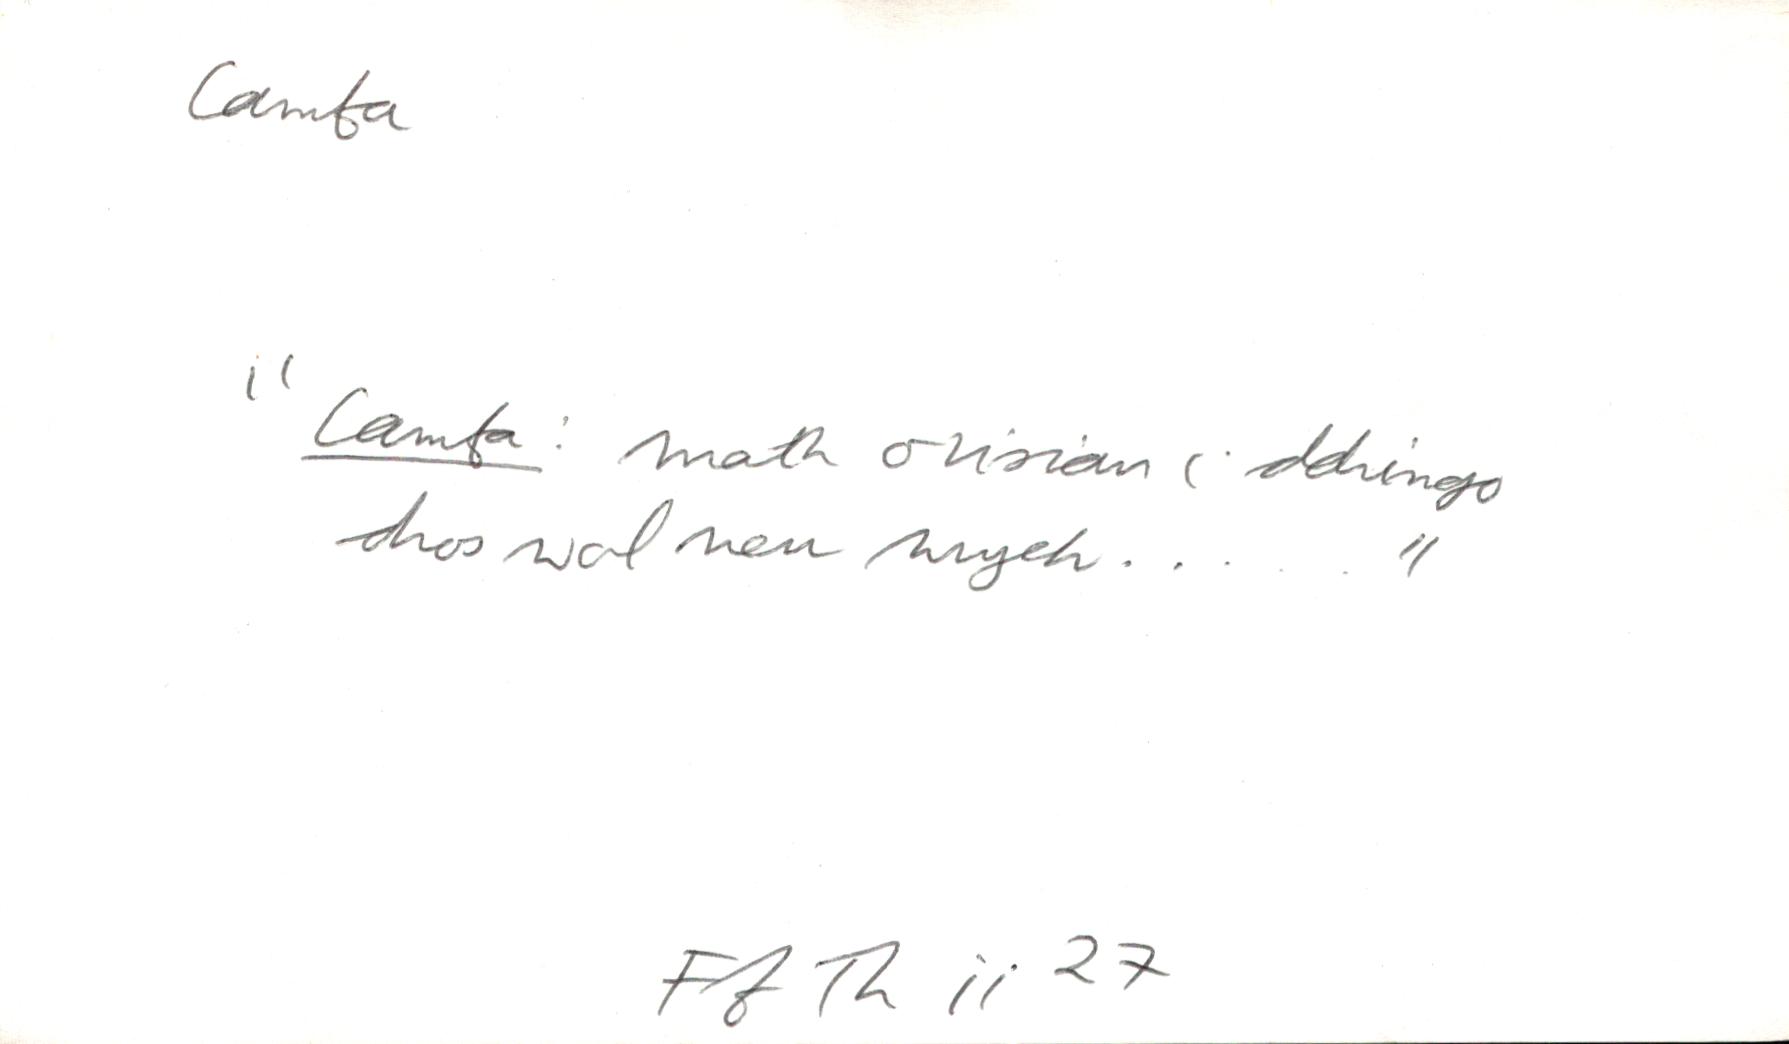 Camfa
"Camfa: math o risian i ddringo
dros wal neu wrych..... "
Ff Th ii 27